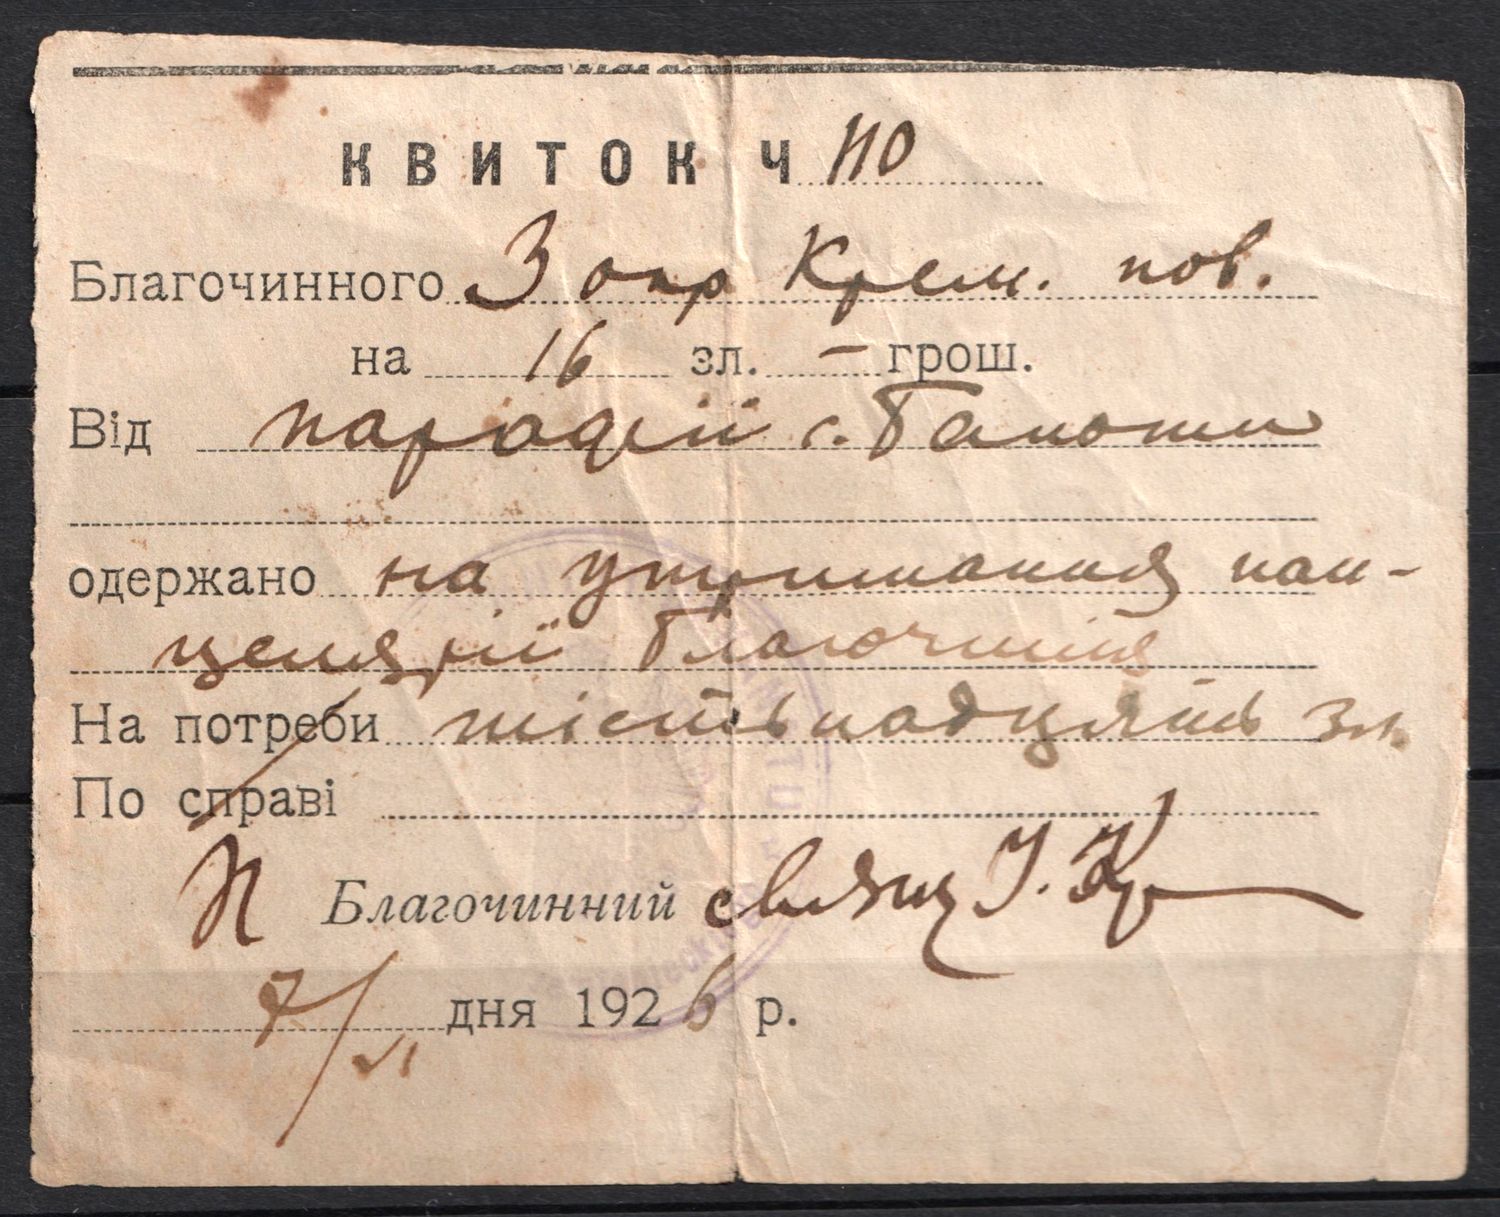 КВИТОК Ч 110
Благочинного 3 окр Крем. пов.
на 16 зл. — грош.
Від парафії с. Бакоти
одержано на утримання кан-
целярії Благочиння
На потреби шістьнадцять зл.
По справі
П Благочинний свящ І.
7/VI дня 1926 р.